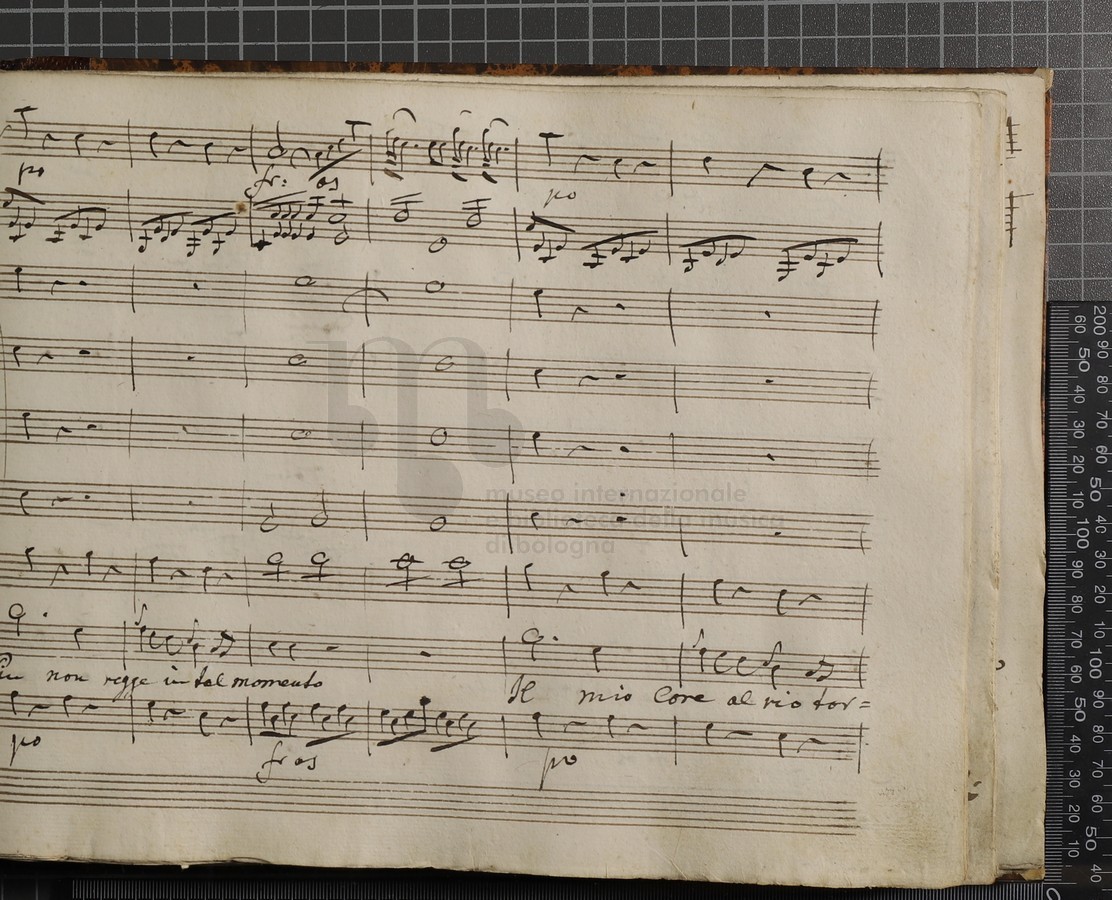 po
fr: as
po
museo internazionale
e biblioteca della musica
di bologna
non regge in tal momento
Il mio Core al rio tor=
po
fr as
po
200 90 80 70 60 50 40 30 20 10 100 90 80 70 60 50 40 30 20 10 100 90 80 70 60 50 40
60 50 40 30 20 10 100 90 80 70 60 50 40 30 20 10 100 90 80 70 60 50 40 30 20 10